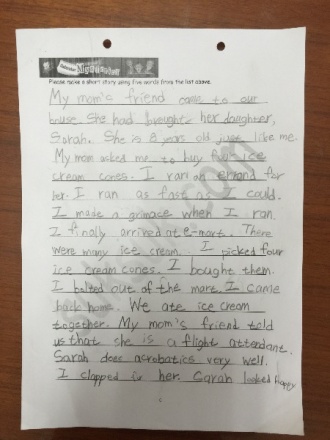 Please make a short story using five words from the list above.
My mom's friend came to our
house. She had brought her daughter,
Sarah. She is 8 years old just like me.
My mom asked me to buy four ice
cream cones. I ran an errand for
her. I ran as fast as I could.
I made a grimace when I ran.
I finally arrived at e-mart. There
were many ice cream. I picked four
ice cream cones. I bought them.
I bolted out of the mart. I came
back home. We ate ice cream
together. My mom's friend told
us that she is a flight attendant.
Sarah does acrobatics very well.
I clapped for her. Sarah looked happy